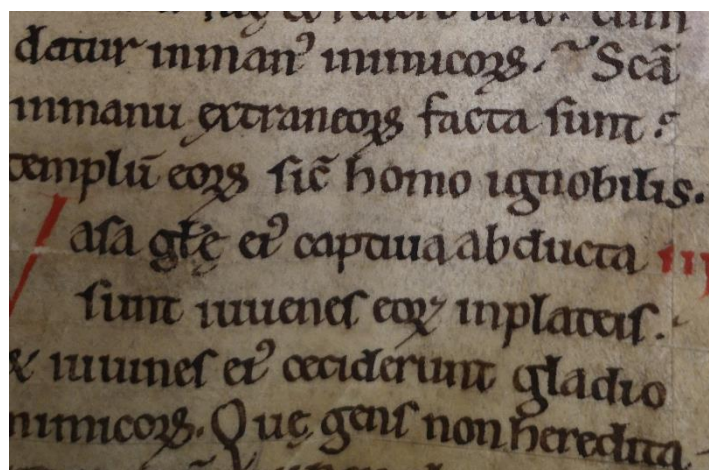 datur inman᾽ inimicoꝝ. Scā
inmanu extraneoꝝ facta sunt :
templū eoꝝ sic̄ homo ignobilis.
asa gl̄ę ei᾽ captiua abducta
sunt iuuenes eoꝝ inplateis.
& iuuines ei᾽ ceciderunt gladio
inimicoꝝ. Quę gens non heredita